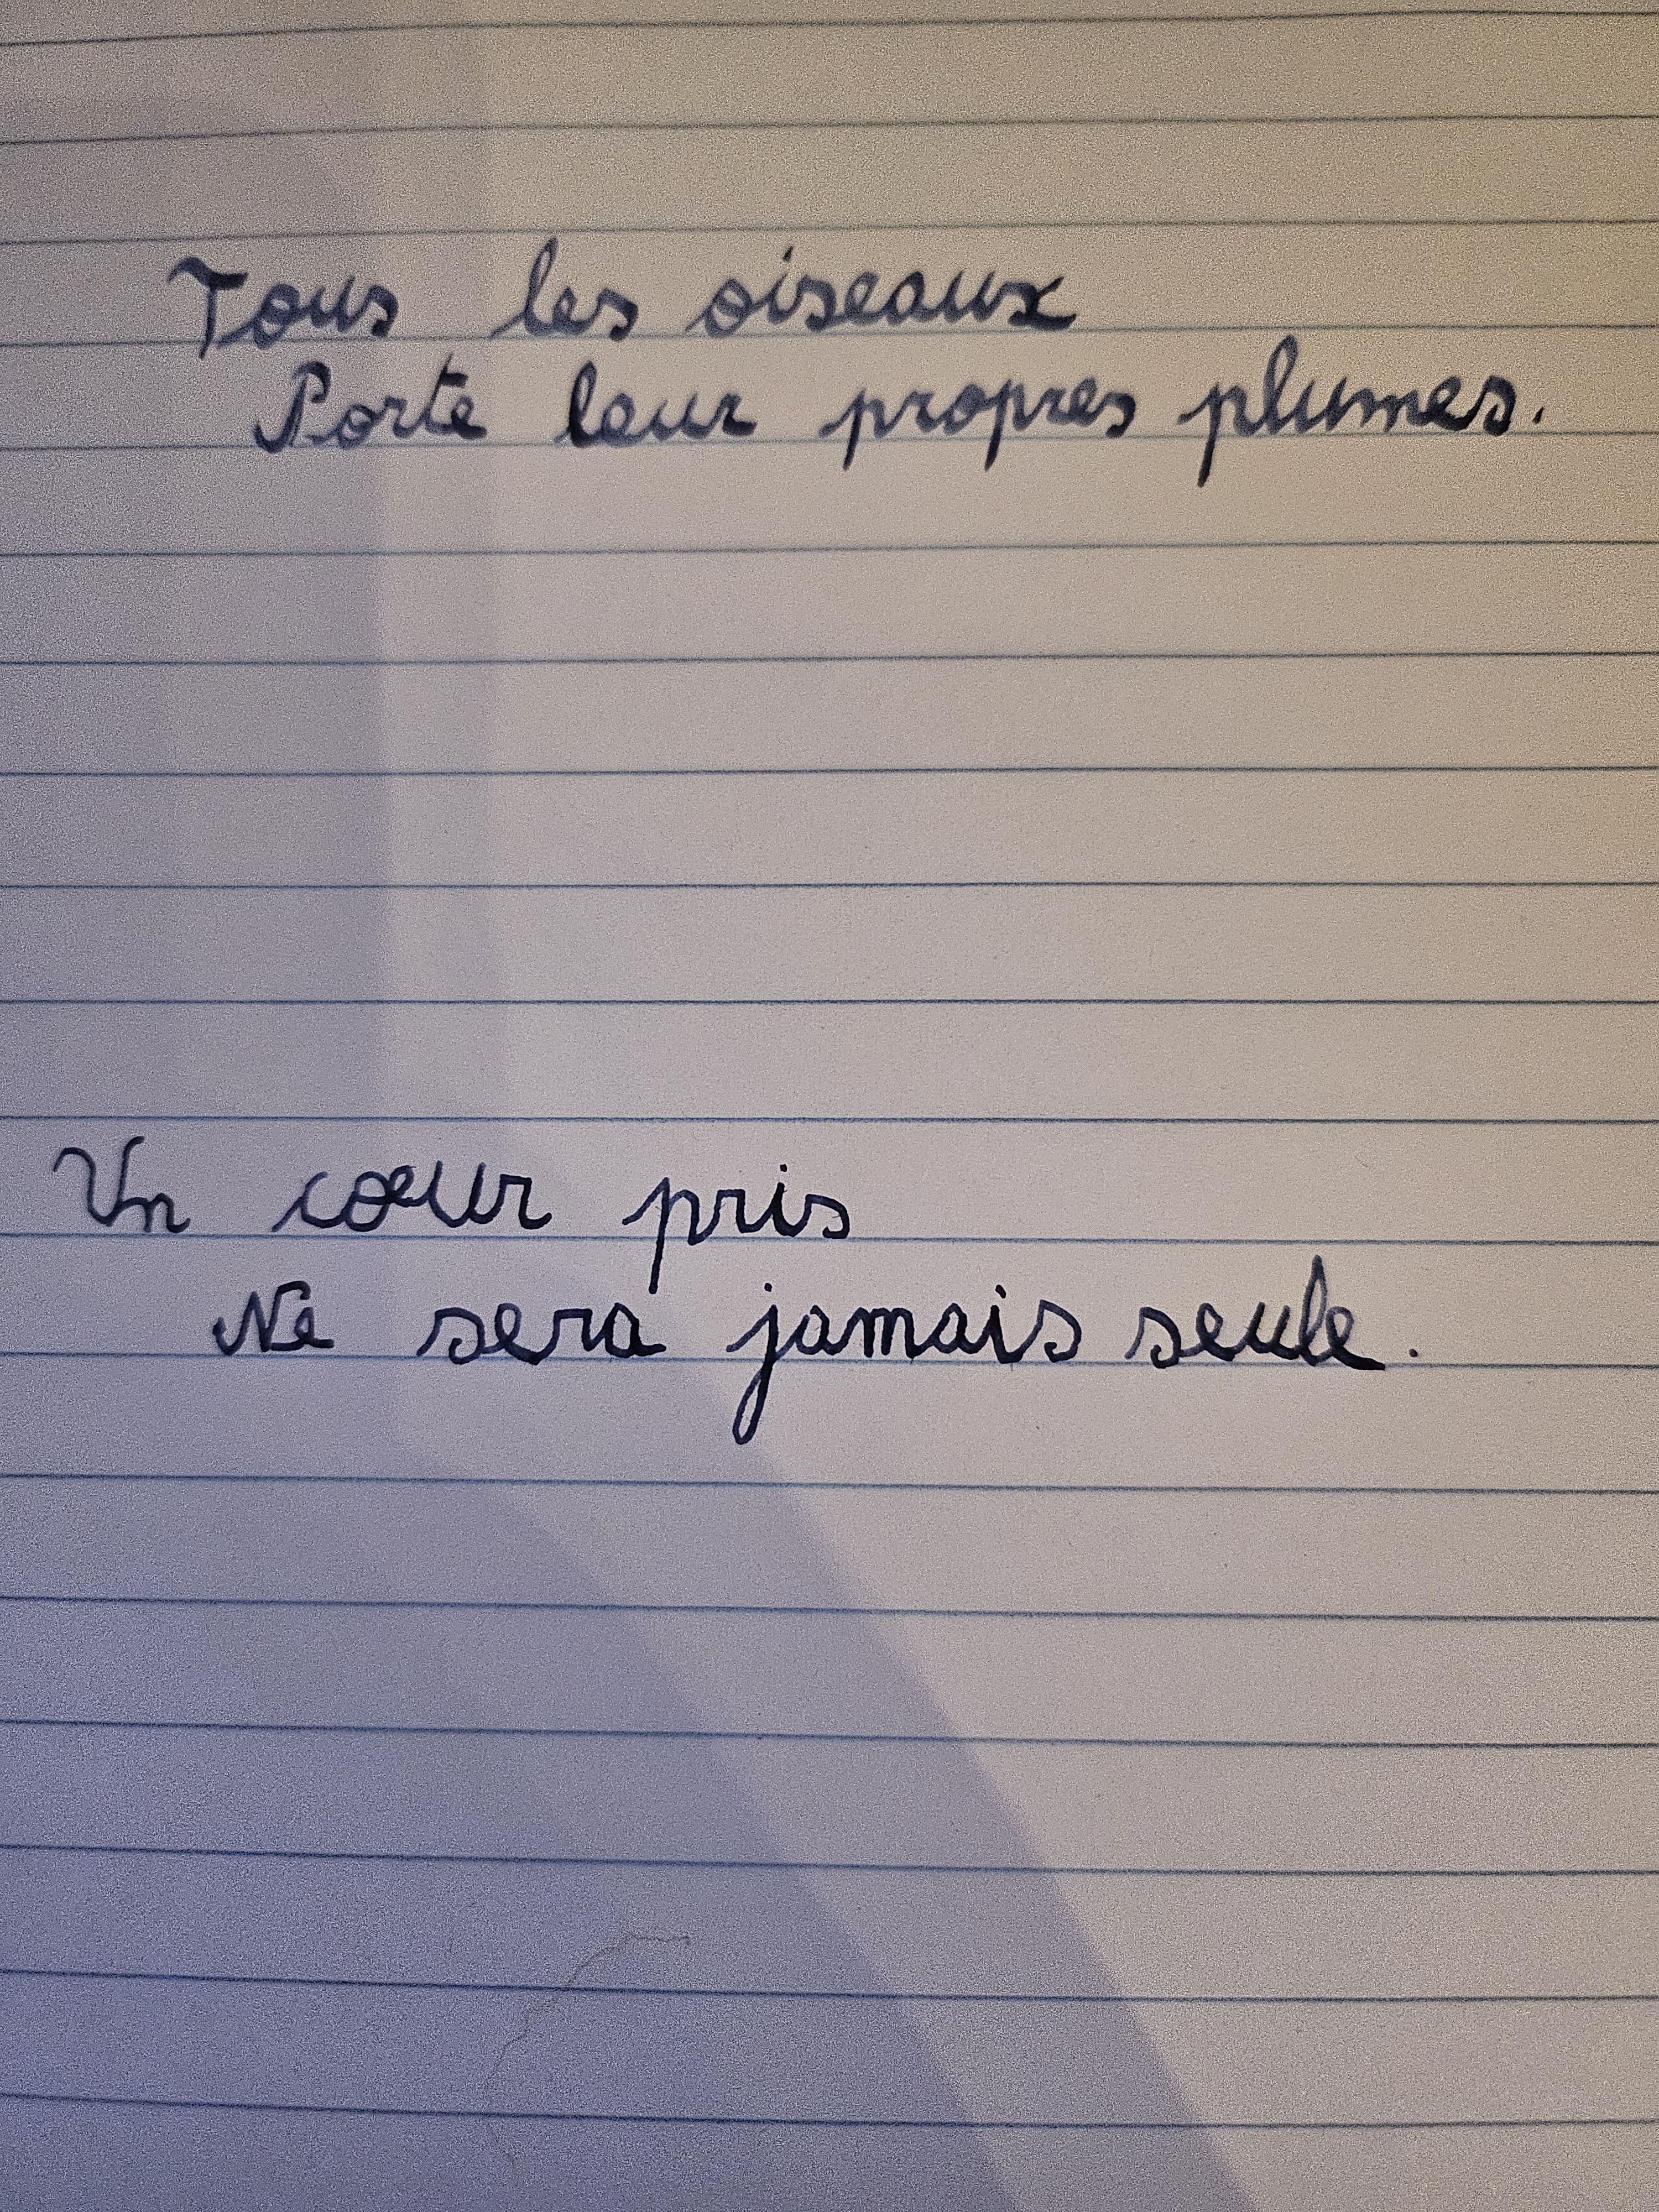 Tous les oiseaux
Porte leur propres plumes.
Un cœur pris
Ne sera jamais seule.